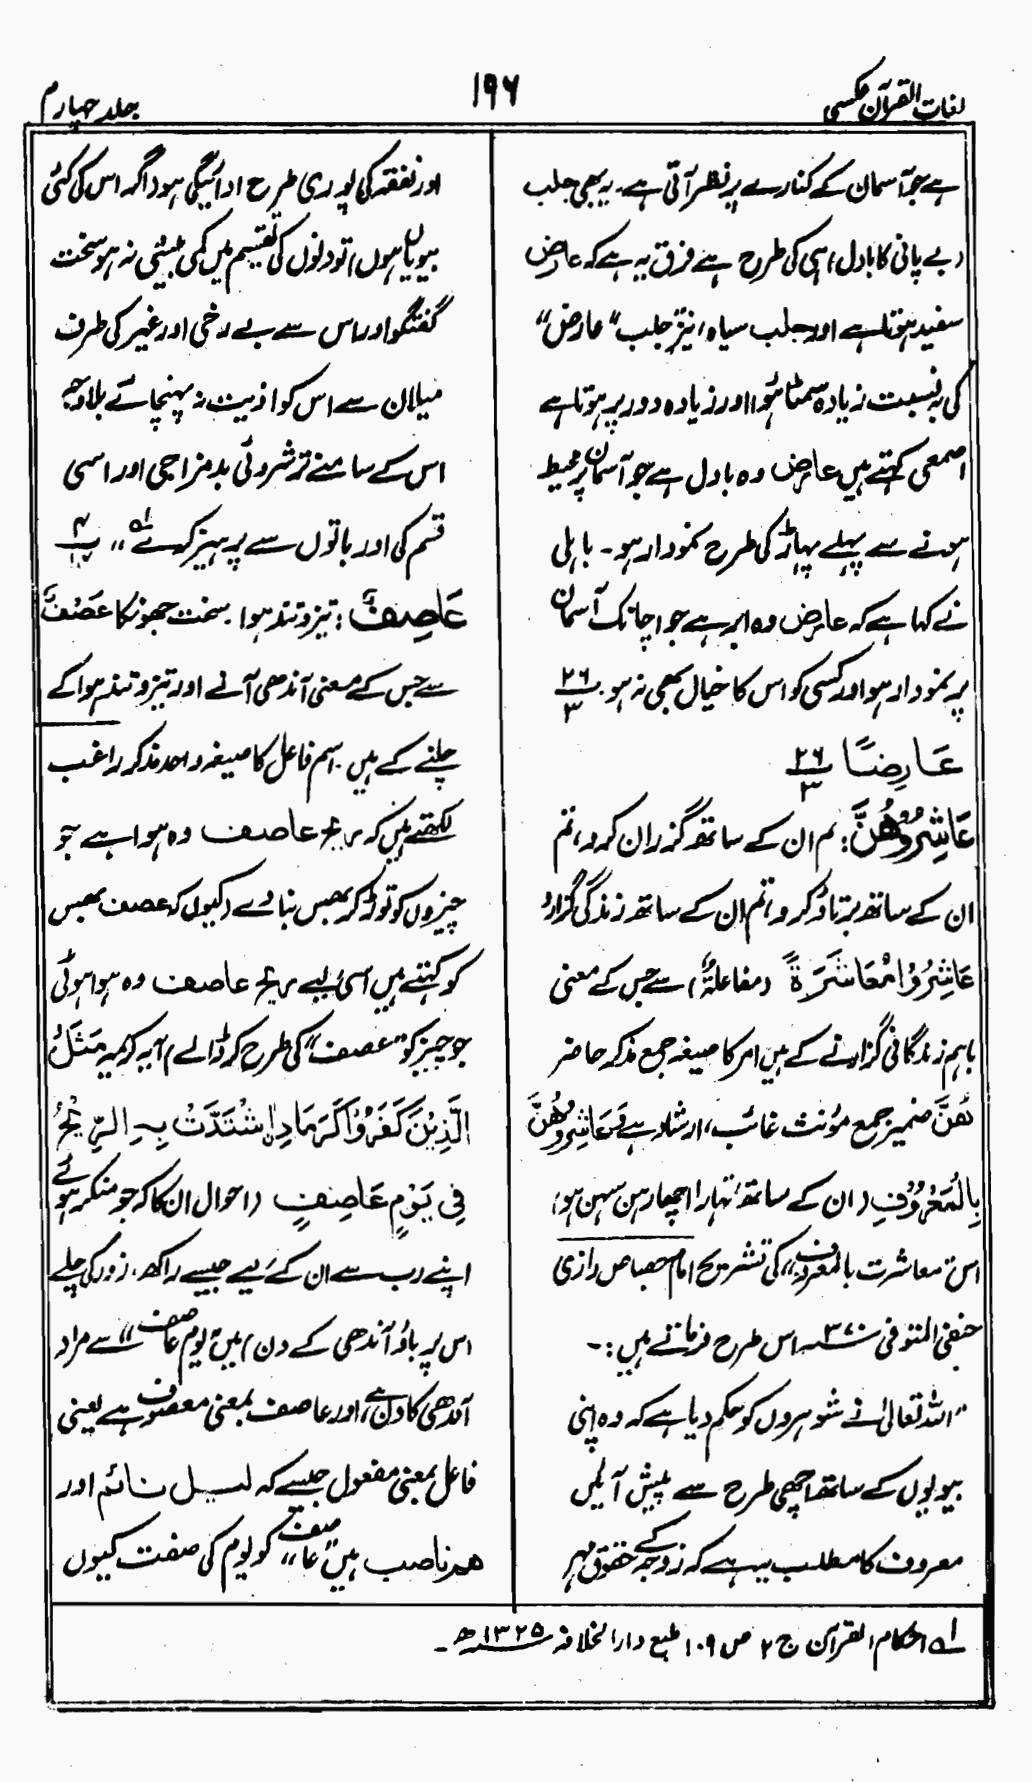 لغات القرآن عکسی
۱۹۶
جلد چہارم
ہے جو آسمان کے کنارے پر نظر آتی ہے۔ یہ بھی جلب
(بے پانی کا بادل) ہی کی طرح ہے فرق یہ ہے کہ عارض
سفید ہوتا ہے اور جلب سیاہ، نیز جلب "عارض"
کی بہ نسبت زیادہ سمٹا ہوا اور زیادہ دور پر ہوتا ہے
اصمعی کہتے ہیں عارض وہ بادل ہے جو آسمان پر محیط
ہونے سے پہلے پہاڑ کی طرح نمودار ہو۔ باہلی
نے کہا ہے کہ عارض وہ ابر ہے جو اچانک آسمان
پر نمودار ہو اور کسی کو اس کا خیال بھی نہ ہو۔ ۲۶/۳
عَارِضًا ۲۶/۳
عَاشِرُوْهُنَّ: تم ان کے ساتھ گزران کرو، تم
ان کے ساتھ برتاؤ کرو، تم ان کے ساتھ زندگی گزارو
عَاشِرُوْا مُعَاشَرَةً (مفاعلۃٌ) سے جس کے معنی
باہم زندگانی گزارنے کے ہیں امر کا صیغہ جمع مذکر حاضر
هُنَّ ضمیر جمع مؤنث غائب، ارشاد ہے وَعَاشِرُوْهُنَّ
بِالْمَعْرُوْفِ (ان کے ساتھ تمہارا اچھا رہن سہن ہو)
اس "معاشرت بالمعروف" کی تشریح امام جصاص رازی
حنفی المتوفی ۳۷۰ھ اس طرح فرماتے ہیں:۔
"اللہ تعالیٰ نے شوہروں کو حکم دیا ہے کہ وہ اپنی
بیویوں کے ساتھ اچھی طرح سے پیش آئیں
معروف کا مطلب یہ ہے کہ زوجہ کے حقوق مہر
اور نفقہ کی پوری طرح ادائیگی ہو (اگر اس کی کئی
بیویاں ہوں) تو دنوں کی تقسیم میں کمی بیشی نہ ہو سخت
گفتگو اور اس سے بے رخی اور غیر کی طرف
میلان سے اس کو اذیت نہ پہنچائے بلا وجہ
اس کے سامنے ترشروئی بدمزاجی اور اسی
قسم کی اور باتوں سے پرہیز کرے" لہ ۴/۱۴
عَاصِفٌ: تیز و تند ہوا۔ سخت جھونکا عَصْفٌ
سے جس کے معنی آندھی آنے اور تیز و تند ہوا کے
چلنے کے ہیں۔ اسم فاعل کا صیغہ واحد مذکر راغب
لکھتے ہیں کہ ریح عاصف وہ ہوا ہے جو
چیزوں کو توڑ کر بھس بنا دے (کیوں کہ عصف بھس
کو کہتے ہیں اسی لیے ریح عاصف وہ ہوا ہوئی
جو چیز کو "عصف" کی طرح کر ڈالے) آیہ کریمہ مَثَلُ
الَّذِیْنَ كَفَرُوْا كَرَمَادِ اِشْتَدَّتْ بِهِ الرِّیْحُ
فِیْ یَوْمٍ عَاصِفٍ (احوال ان کا کہ جو منکر ہوئے
اپنے رب سے ان کے کیے جیسے راکھ، زور کی چلے
اس پر باؤ آندھی کے دن) میں "یوم عاصف" سے مراد
آندھی کا دن ہے، اور عاصف بمعنی معصوف ہے یعنی
فاعل بمعنی مفعول جیسے کہ لیل نائم اور
ھم ناصب ہیں "عاصف" کو یوم کی صفت کیوں
لہ احکام القرآن ج ۲ ص ۱۰۹ طبع دار الخلافۃ ۱۳۲۵ھ۔